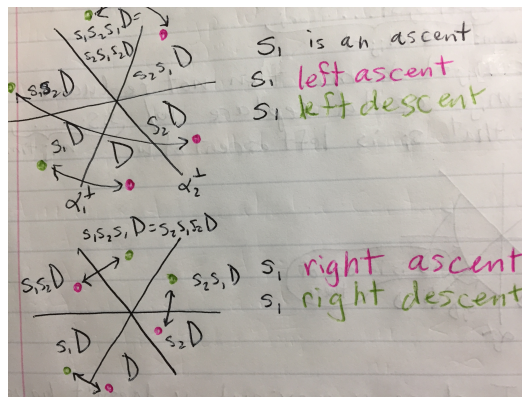 s₁s₂s₁D =
s₂s₁s₂D
s₂s₁D
s₁s₂D
s₁D
D
s₂D
α₁^⊥
α₂^⊥
s₁ is an ascent
s₁ left ascent
s₁ left descent
s₁s₂s₁D = s₂s₁s₂D
s₁s₂D
s₂s₁D
s₁D
D
s₂D
s₁ right ascent
s₁ right descent